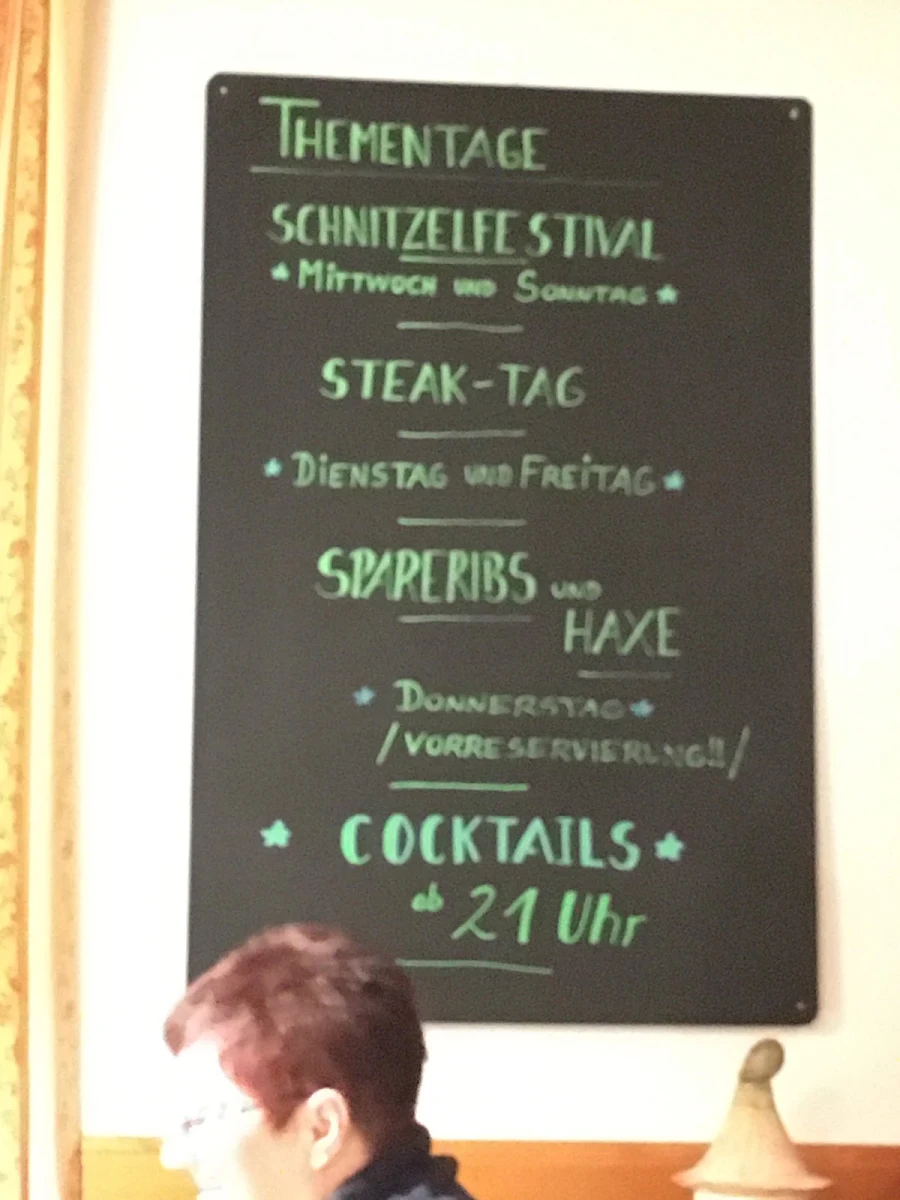 THEMENTAGE
SCHNITZELFESTIVAL
MITTWOCH UND SONNTAG
STEAK-TAG
DIENSTAG UND FREITAG
SPARERIBS UND
HAXE
DONNERSTAG
/VORRESERVIERUNG!!/
COCKTAILS
ab 21 Uhr